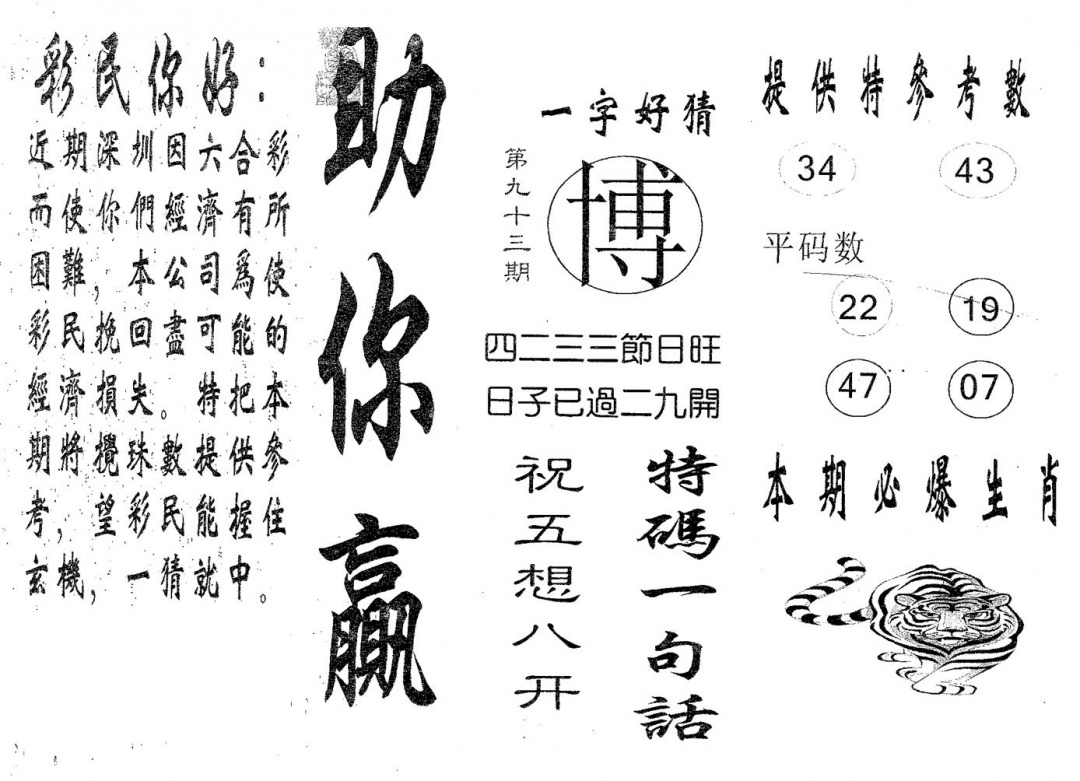 彩民你好：
近期深圳因六合彩
而使你們經濟有所
困難，本公司爲使
彩民挽回盡可能的
經濟損失。特把本
期將攪珠數提供參
考，望彩民能握住
玄機，一猜就中。
助你贏
一字好猜
第九十三期
博
四二三三節日旺
日子已過二九開
特碼一句話
祝五想八开
提供特參考數
34 43
平码数
22 19
47 07
本期必爆生肖